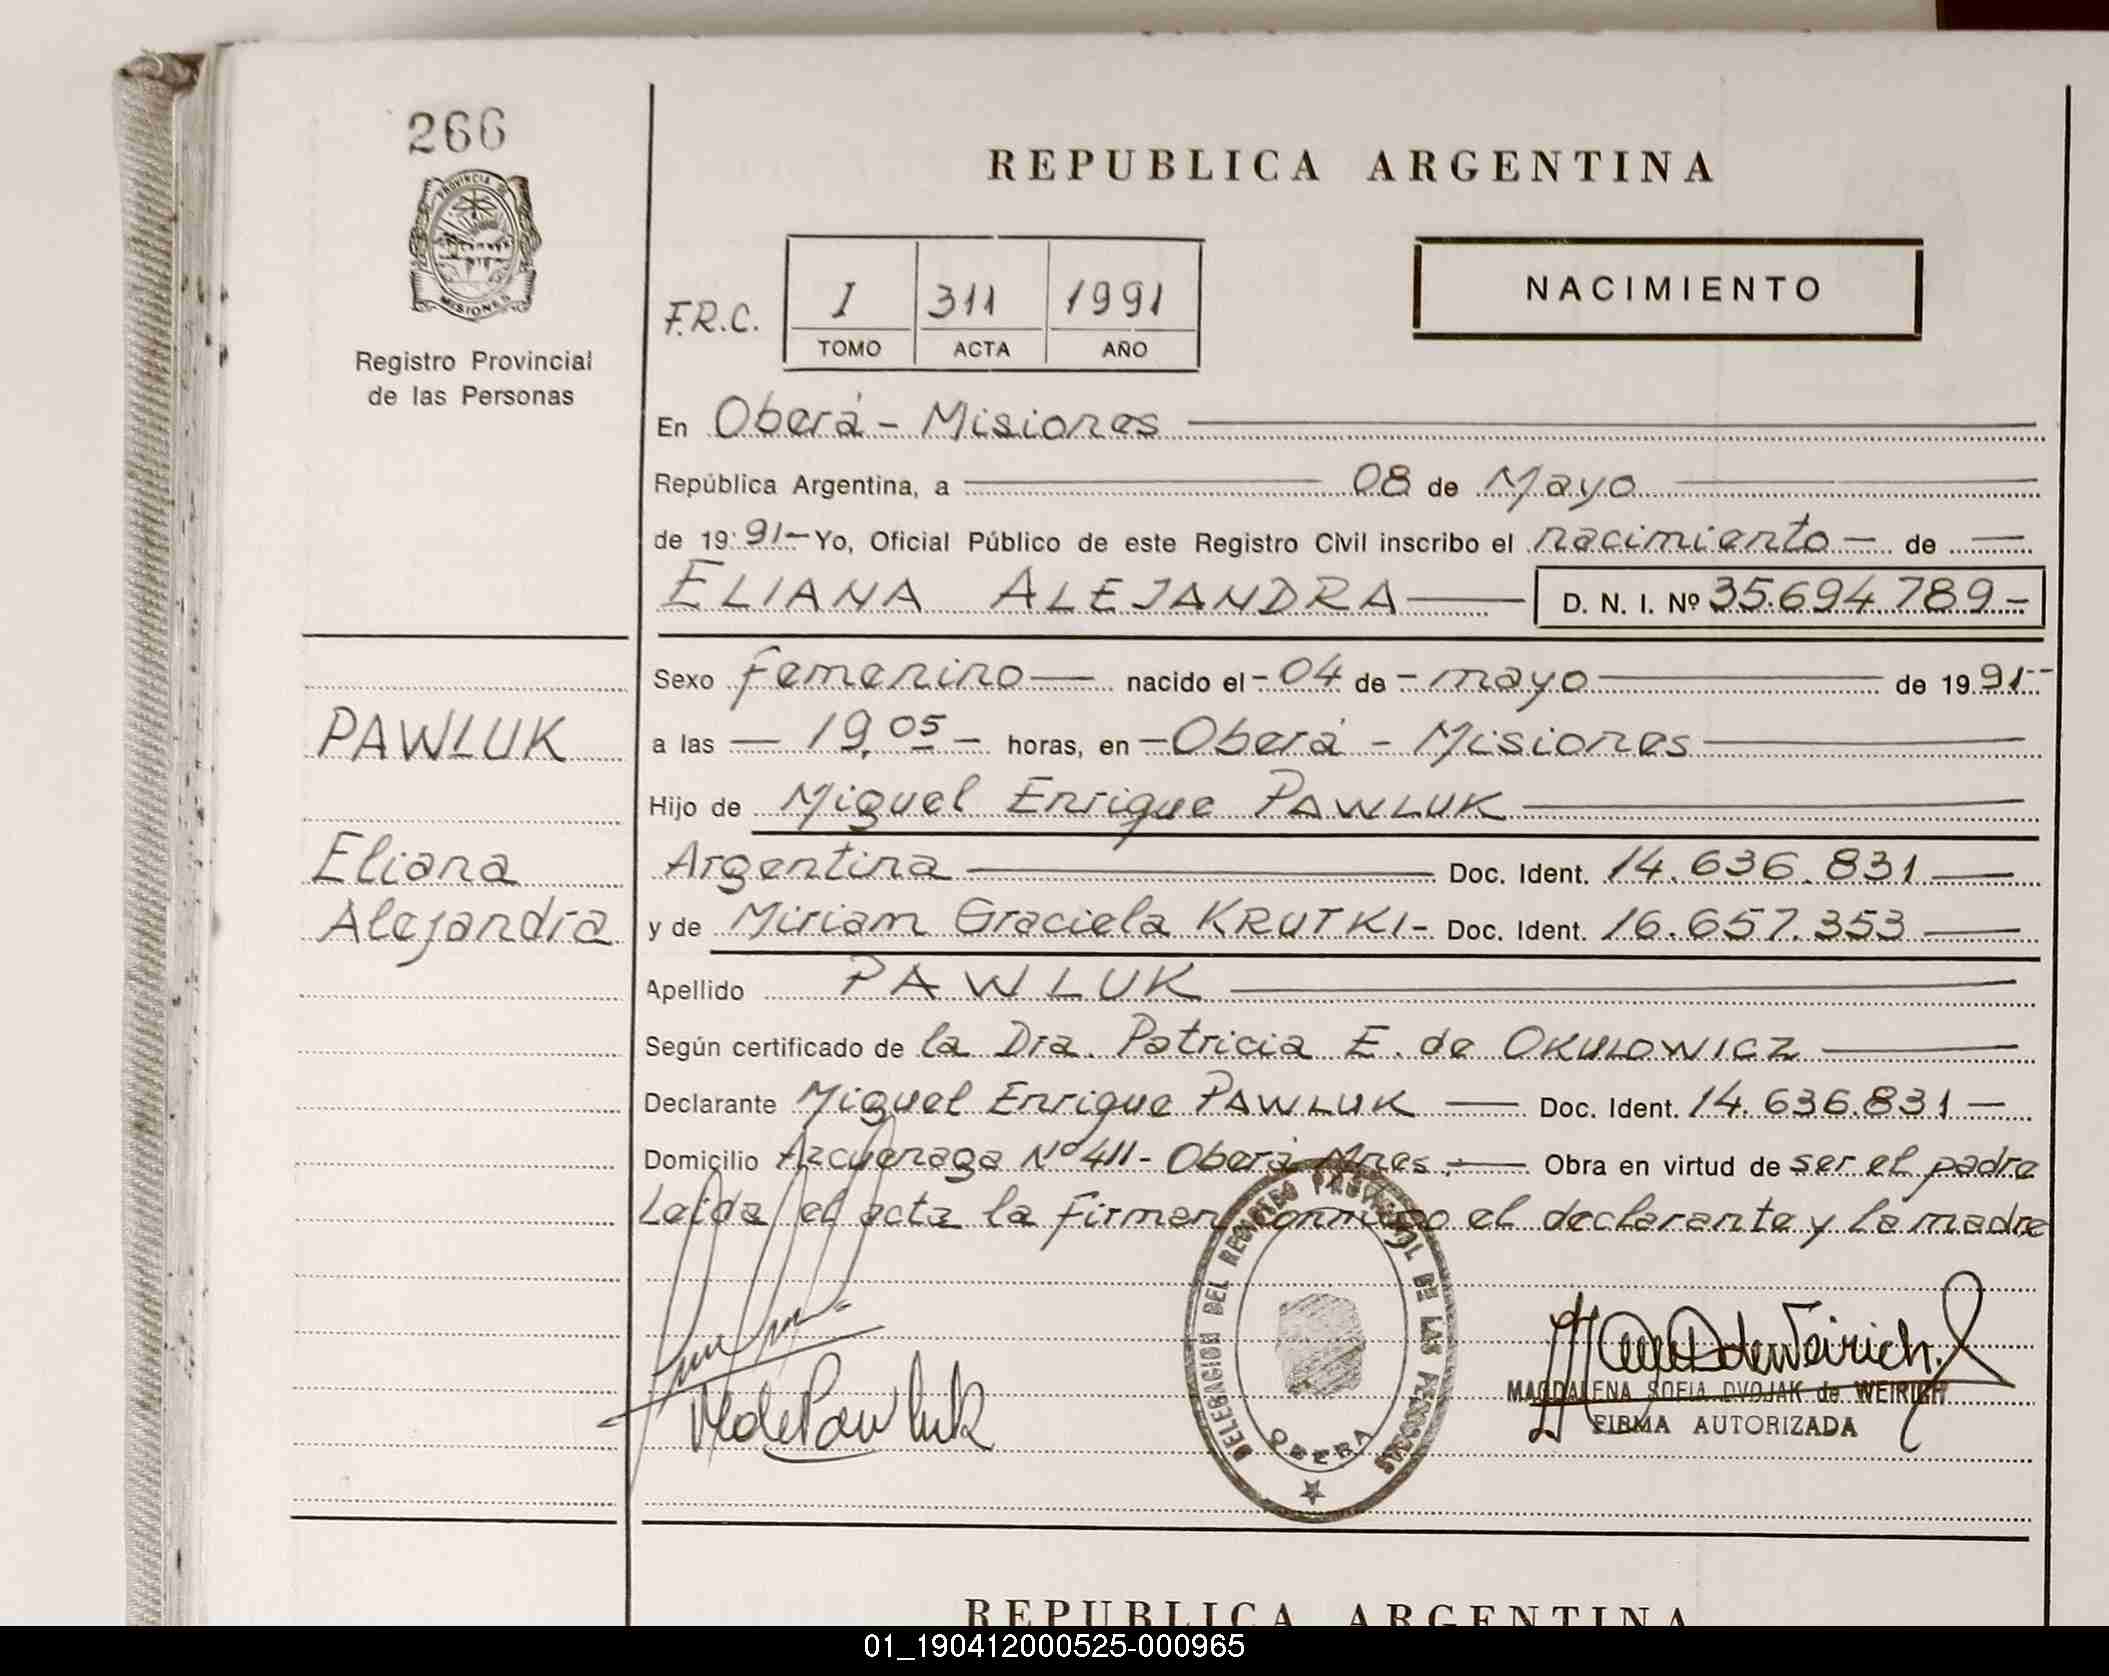 266
PROVINCIA DE
MISIONES
Registro Provincial
de las Personas
REPUBLICA ARGENTINA
F.R.C.
I 311 1991
TOMO ACTA AÑO
NACIMIENTO
En Oberá - Misiones
República Argentina, a 08 de Mayo
de 1991 - Yo, Oficial Público de este Registro Civil inscribo el nacimiento - de
ELIANA ALEJANDRA D. N. I. Nº 35.694.789-
Sexo femenino nacido el - 04 de - mayo de 1991--
PAWLUK
a las - 19,05 - horas, en - Oberá - Misiones
Hijo de Miguel Enrique PAWLUK
Eliana
Argentina Doc. Ident. 14.636.831
Alejandra
y de Miriam Graciela KRUTKI - Doc. Ident. 16.657.353
Apellido PAWLUK
Según certificado de la Dra. Patricia E. de OKULOWICZ
Declarante Miguel Enrique PAWLUK Doc. Ident. 14.636.831 -
Domicilio Azcuenaga Nº 411 - Oberá Mnes. Obra en virtud de ser el padre
Leida el acta la firman conmigo el declarante y la madre
DELEGACION DEL REGISTRO PROVINCIAL DE LAS PERSONAS
OBERA
de Pawluk
de Weirich
MAGDALENA SOFIA DVOJAK de WEIRICH
FIRMA AUTORIZADA
REPUBLICA ARGENTINA
01_190412000525-000965